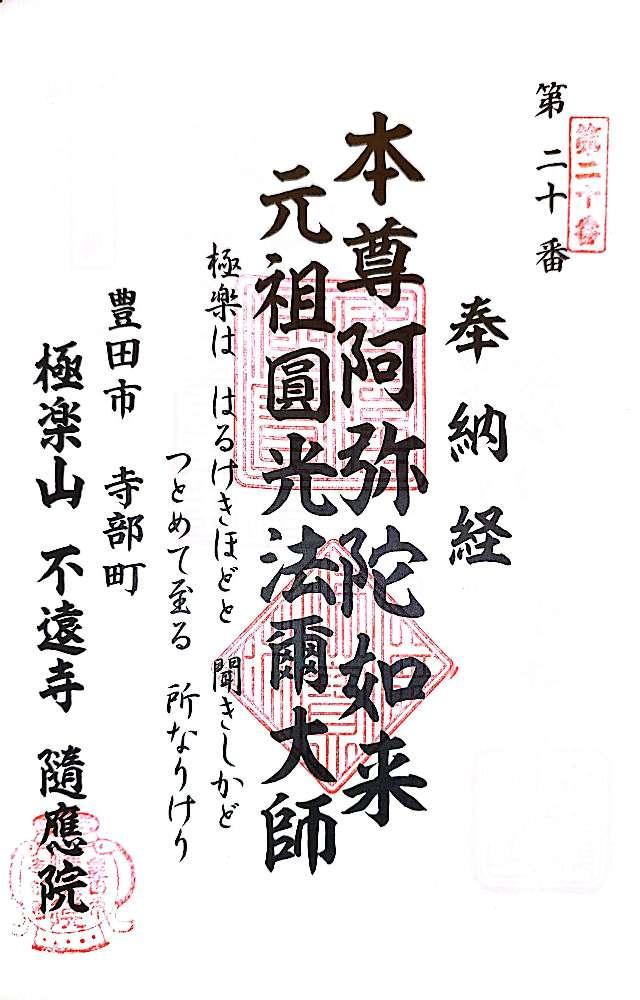 第二十番
第二十番
奉納経
本尊阿弥陀如来
元祖圓光法爾大師
極楽は はるけきほどと 聞きしかど
つとめて至る 所なりけり
豊田市 寺部町
極楽山 不遠寺 隨應院